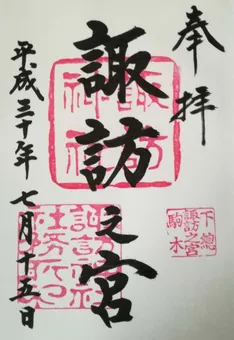 奉拝
諏訪之宮
平成三十年七月十五日
諏訪神社
下總
諏訪之宮
駒木
諏訪神社
社務所印